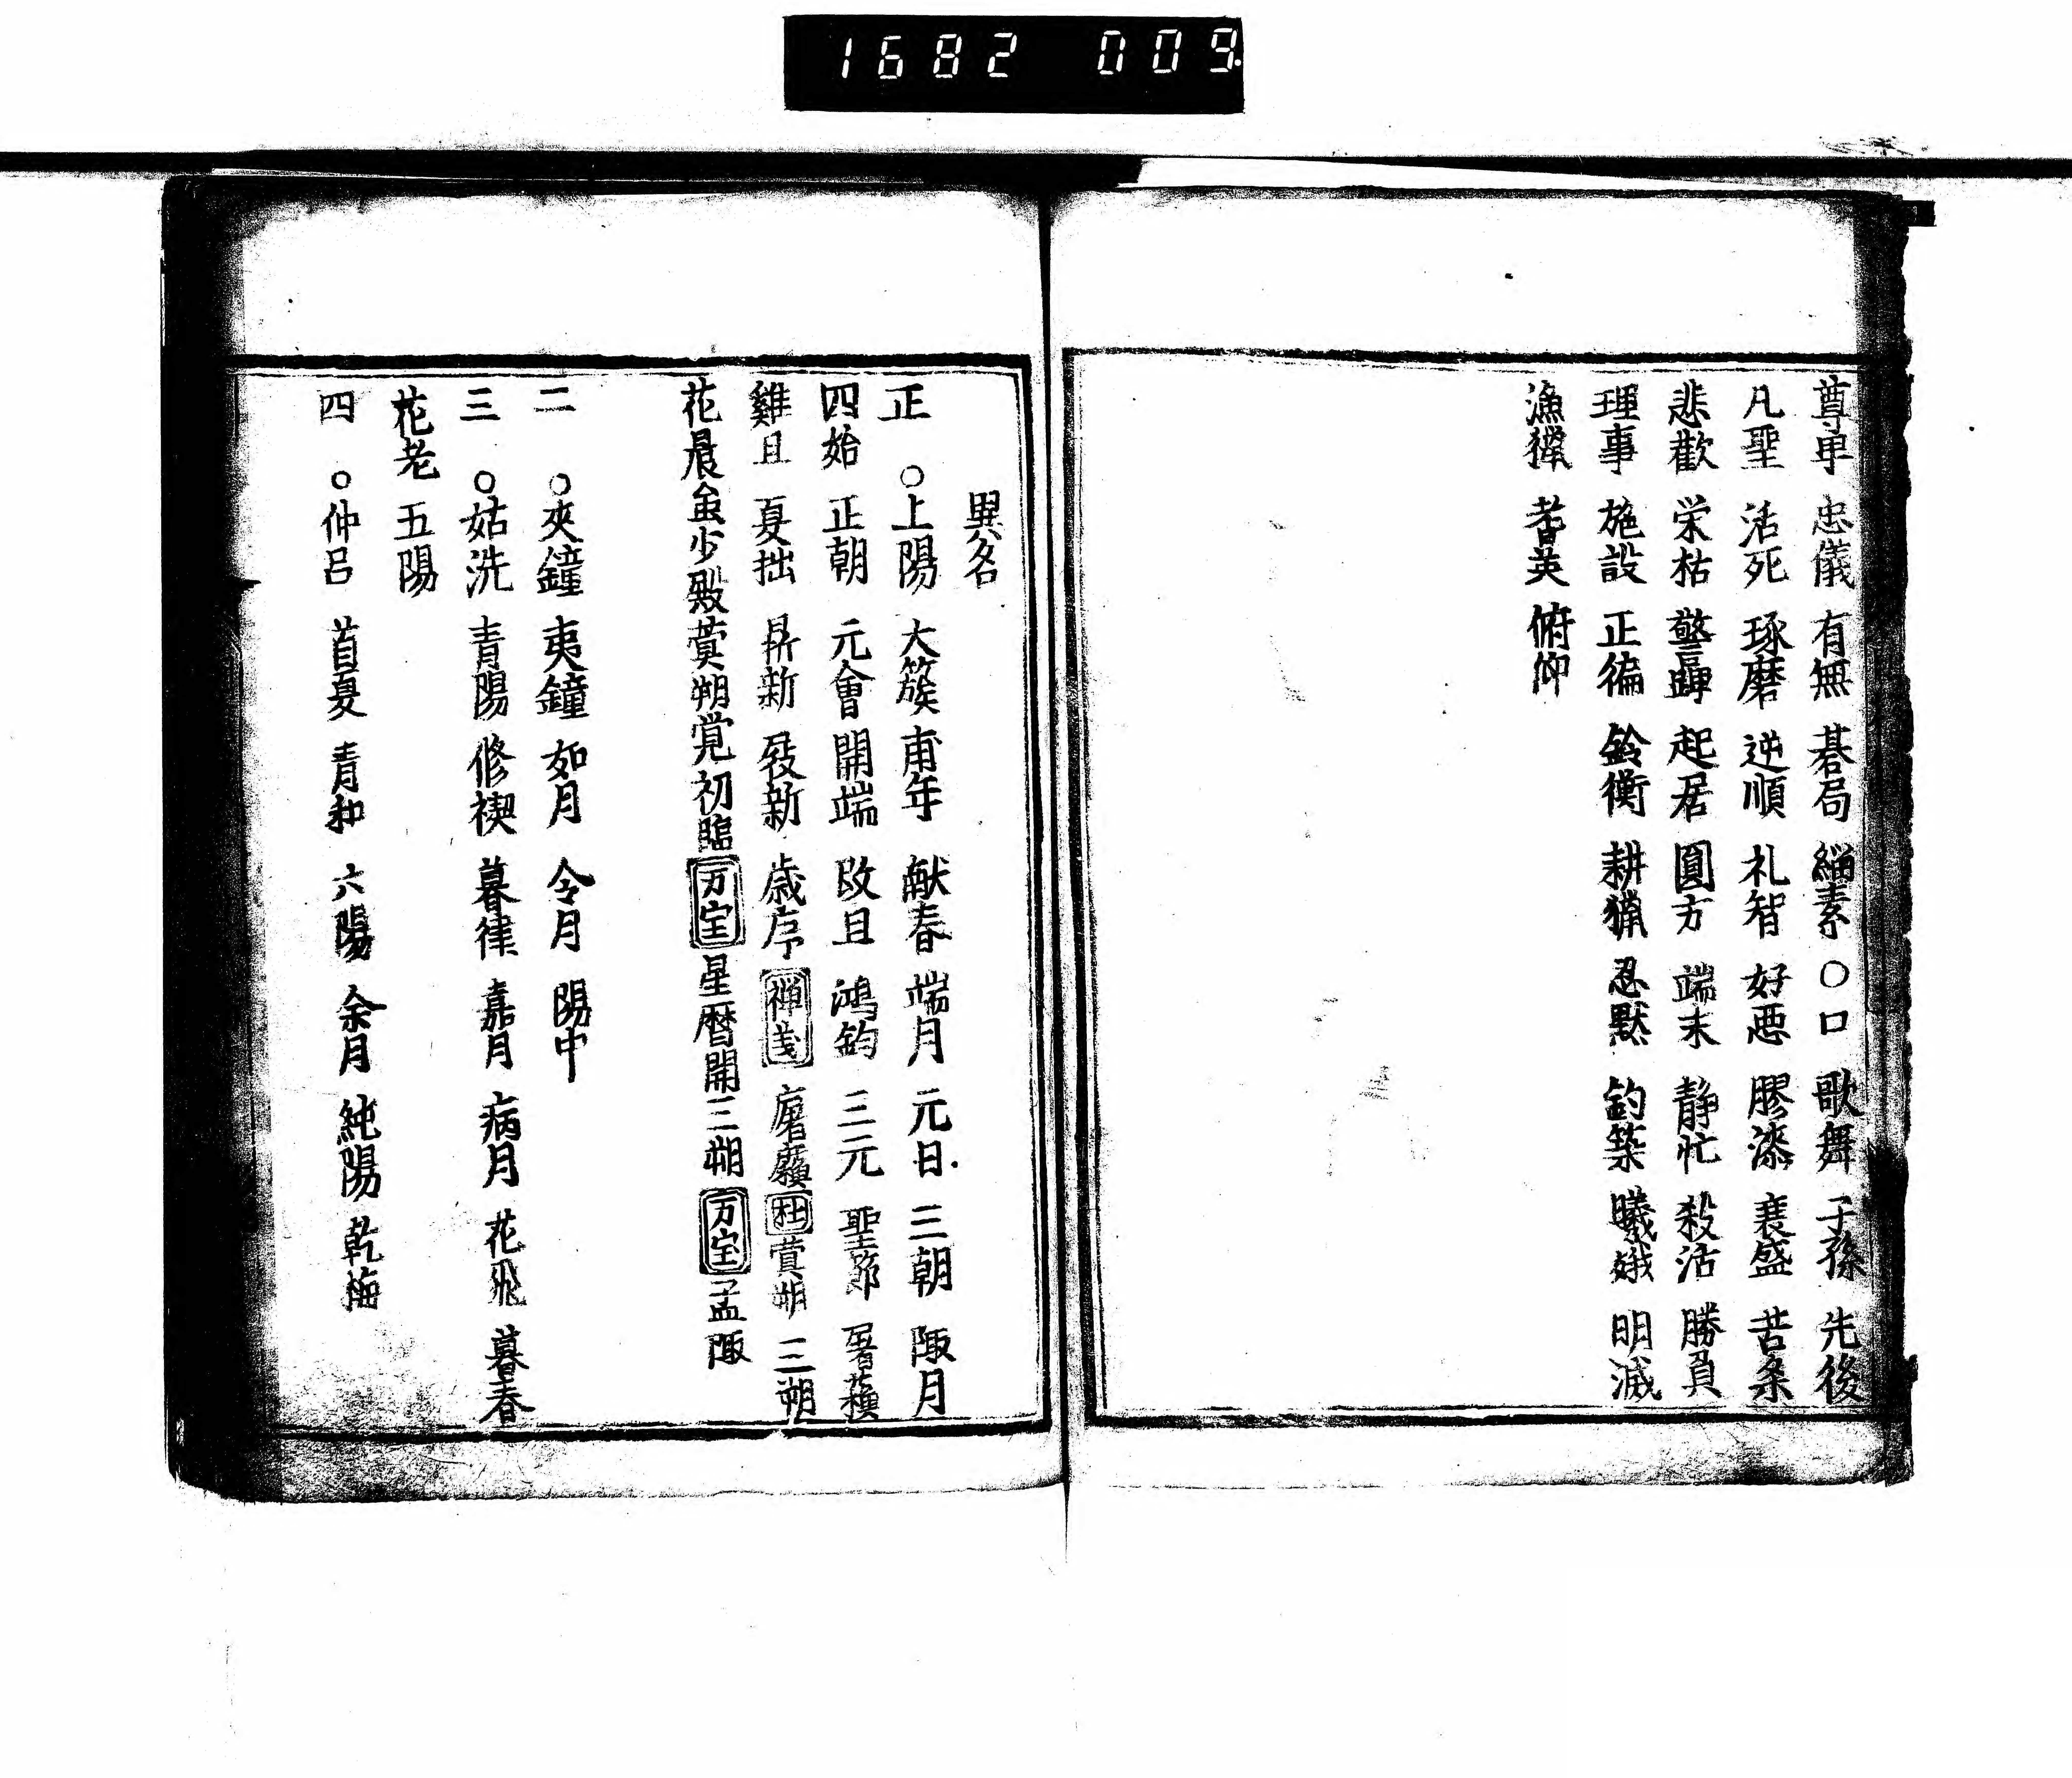 1682 009
尊卑 忠儀 有無 碁局 緇素 〇口 歌舞 子孫 先後
凡聖 活死 琢磨 逆順 礼智 好惡 膠漆 衰盛 苦楽
悲歡 栄枯 警蹕 起居 圓方 端末 静忙 殺活 勝負
理事 施設 正徧 鈴衡 耕獵 忍黙 釣築 曦娥 明滅
漁 英 俯仰
異名
正 〇上陽 大簇 甫年 献春 端月 元日 三朝 陬月
四始 正朝 元會 開端 改旦 鴻鈞 三元 聖節 屠蘓
雞旦 夏拙 鼎新 發新 歳序 禅 屠 杜 蓂朔 三朔
花晨 金少殿 蓂朔 初臨 万宝 星暦開三朔 万宝 孟陬
二 〇夾鐘 夷鐘 如月 令月 陽中
三 〇姑洗 青陽 修禊 暮律 嘉月 病月 花飛 暮春
花老 五陽
四 〇仲呂 首夏 青和 六陽 余月 純陽 乾梅